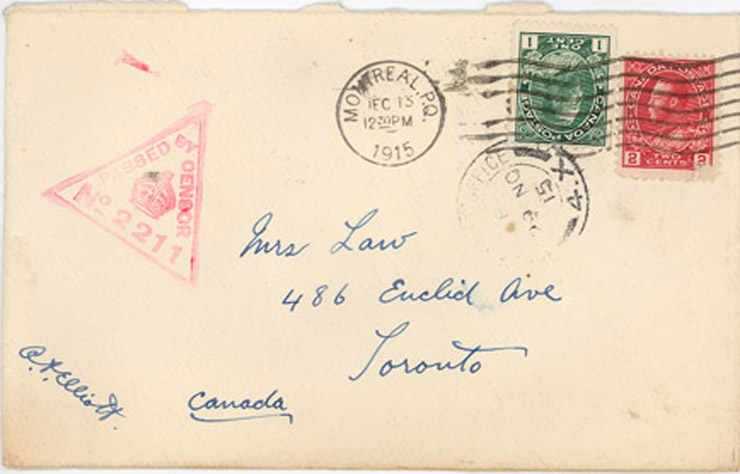 MONTREAL, P.Q.
DEC 13
12 30 PM
1915
1 ONE CENT 1
CANADA POSTAGE
CANADA POSTAGE
2 TWO CENTS 2
PASSED BY CENSOR
No 2211
OFFICE
4.X
NO
15
Mrs Law
486 Euclid Ave
Toronto
Canada
Elliott.